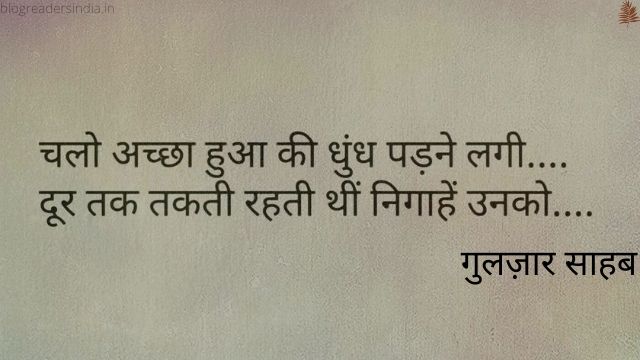 blogreadersindia.in
चलो अच्छा हुआ की धुंध पड़ने लगी....
दूर तक तकती रहती थीं निगाहें उनको....
गुलज़ार साहब